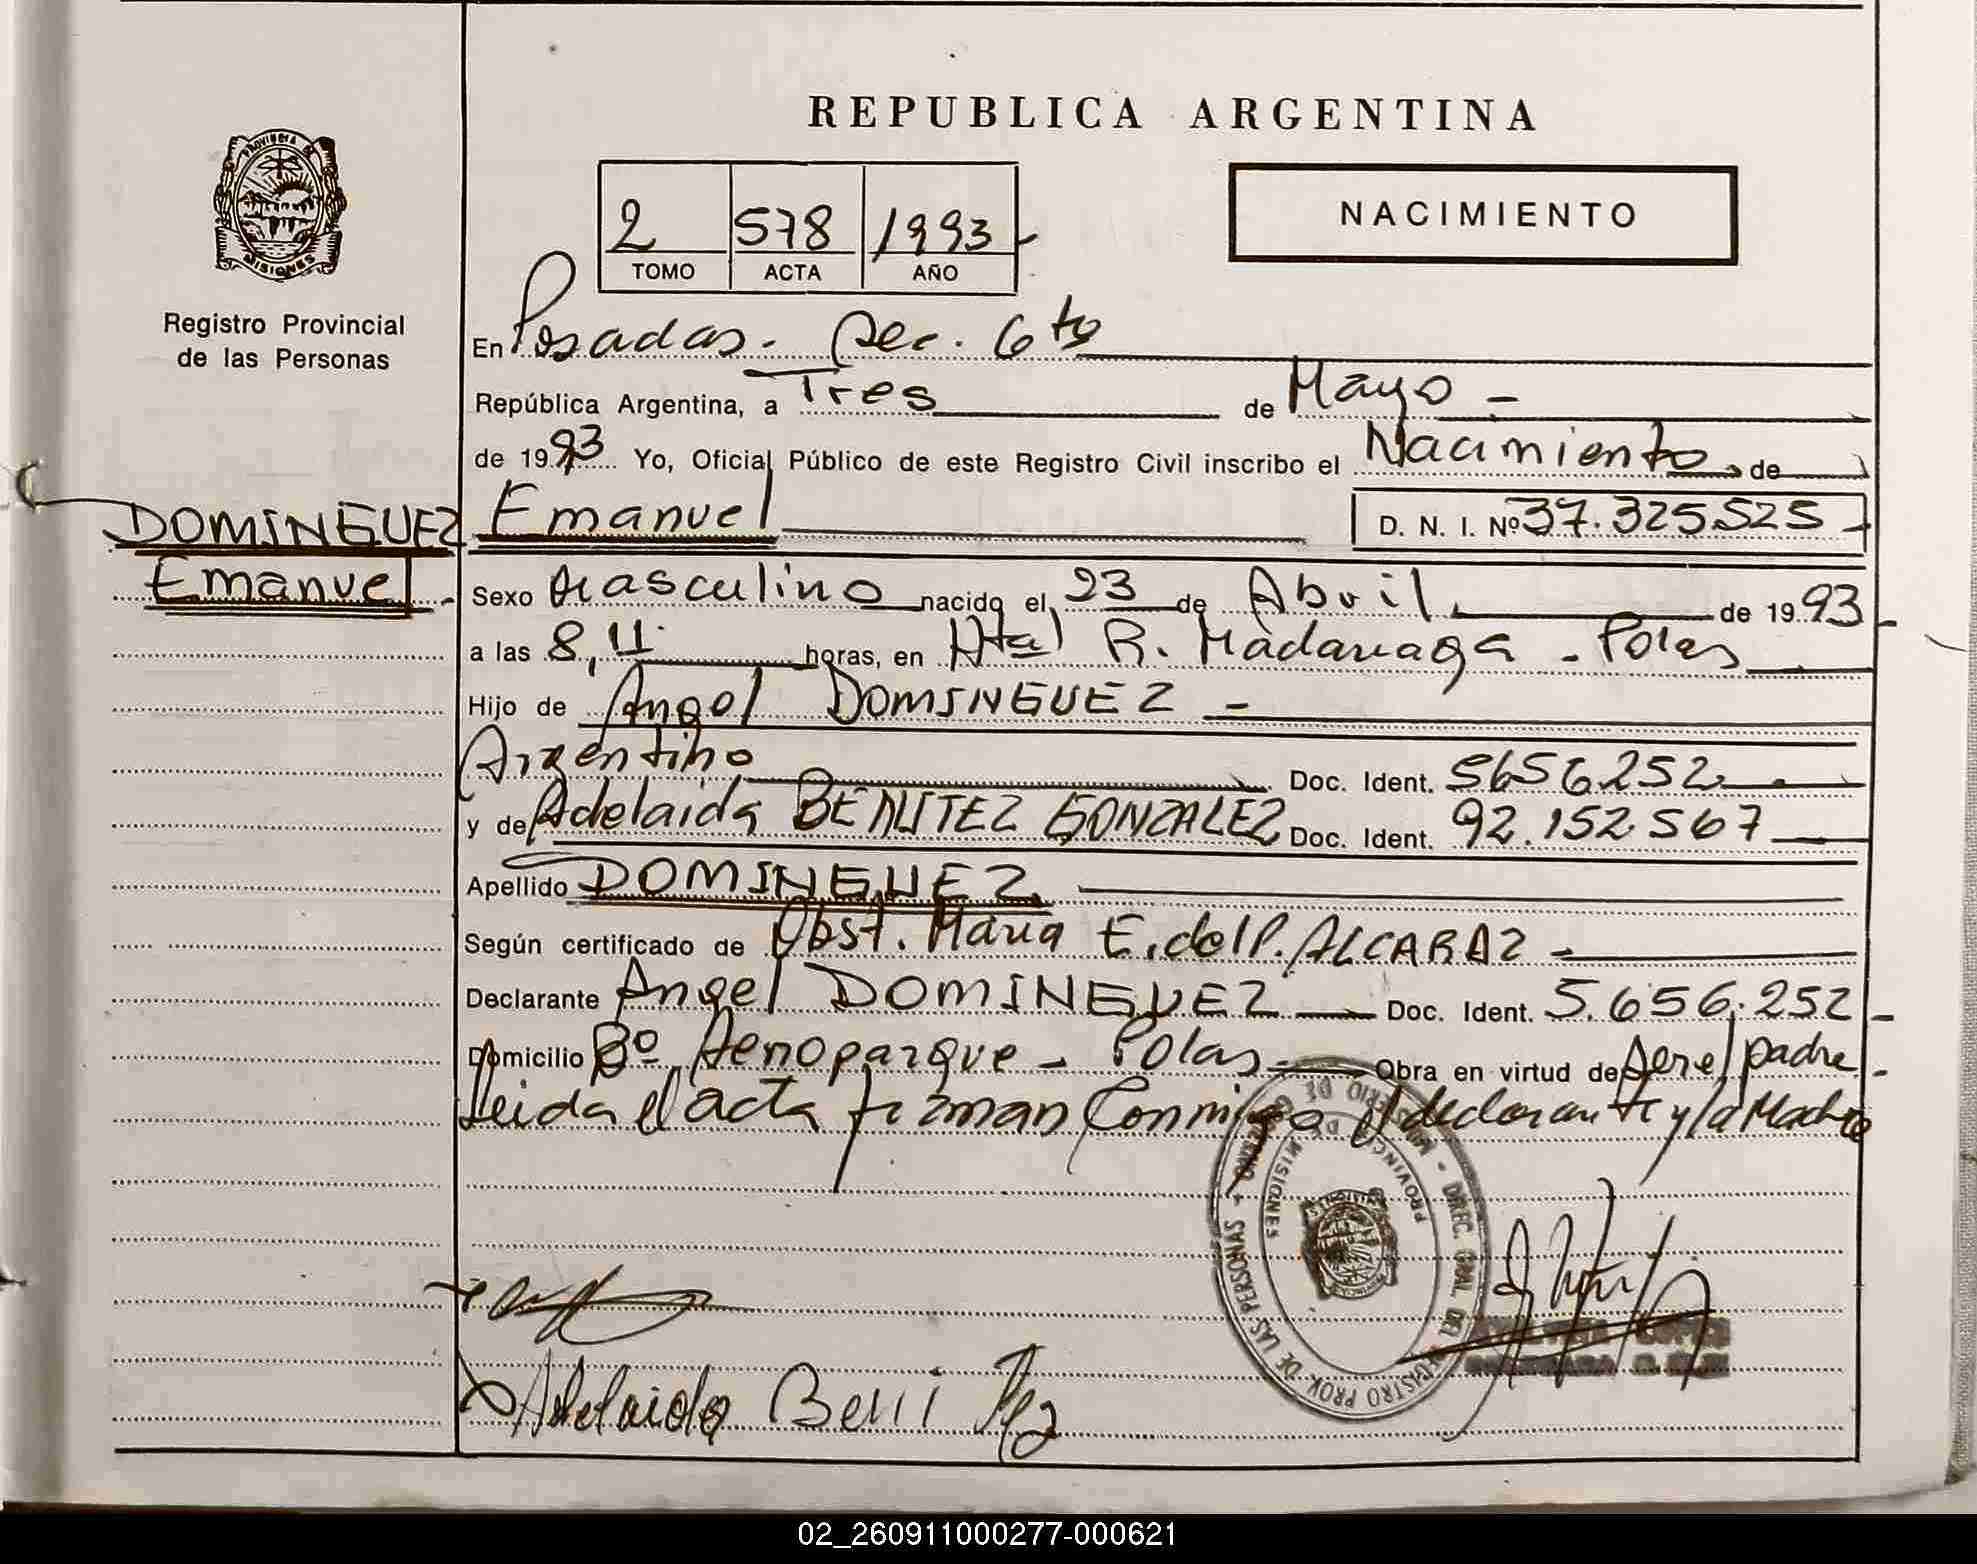 REPUBLICA ARGENTINA
PROVINCIA DE
MISIONES
Registro Provincial
de las Personas
2 578 1993
TOMO ACTA AÑO
NACIMIENTO
En Posadas. Sec. 6ta
República Argentina, a Tres de Mayo
de 1993 Yo, Oficial Público de este Registro Civil inscribo el Nacimiento de
DOMINGUEZ
Emanuel
Emanuel D. N. I. Nº 37.325.525
Sexo Masculino nacido el 23 de Abril de 1993
a las 8,11 horas, en Htal R. Madariaga - Pdas
Hijo de Angel DOMINGUEZ
Argentino Doc. Ident. 5656252
y de Adelaida BENITEZ GONZALEZ Doc. Ident. 92.152.567
Apellido DOMINGUEZ
Según certificado de Obst. Maria E. del P. ALCARAZ
Declarante Angel DOMINGUEZ Doc. Ident. 5.656.252
Domicilio Bº Aeroparque - Pdas Obra en virtud de Ser el padre
Leida el acta firman Conmigo el declarante y la Madre
MINISTERIO DE GOBIERNO - DIREC. GRAL. DEL REGISTRO PROV. DE LAS PERSONAS
PROVINCIA DE MISIONES
Adelaida Benitez
02_260911000277-000621